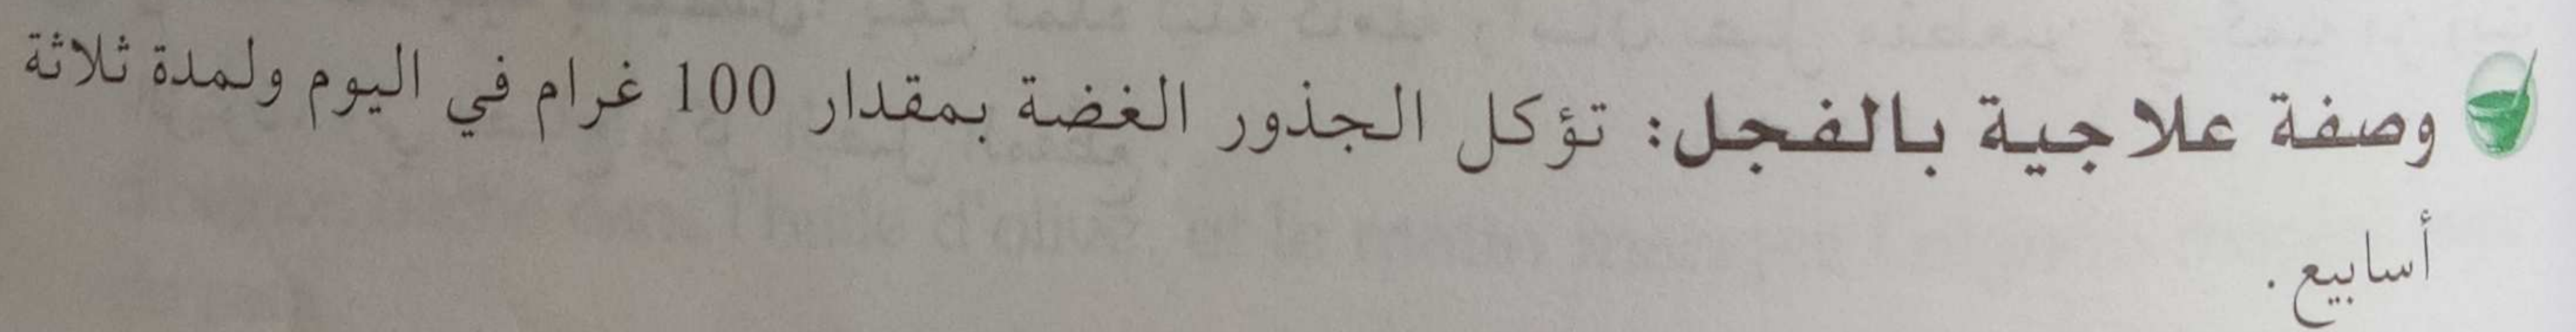 وصفة علاجية بالفجل: تؤكل الجذور الغضة بمقدار 100 غرام في اليوم ولمدة ثلاثة
أسابيع.